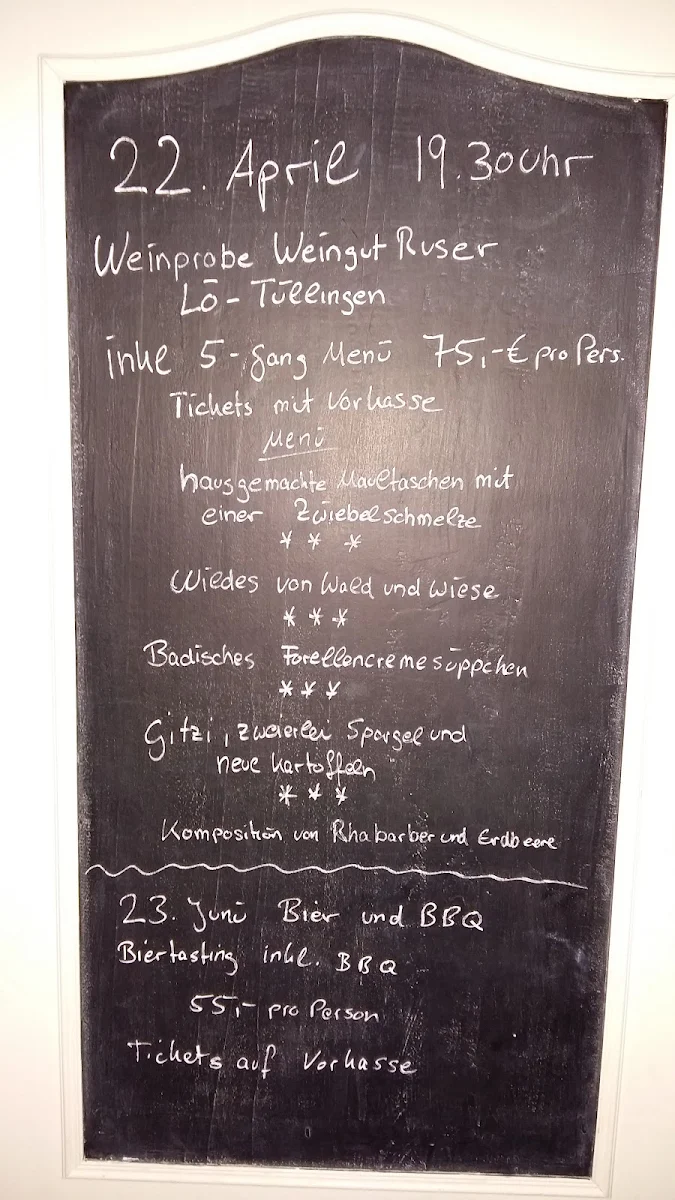 22. April 19.30 Uhr
Weinprobe Weingut Ruser
Lö-Tüllingen
inkl 5-Gang Menü 75,-€ pro Pers.
Tickets mit Vorkasse
Menü
hausgemachte Maultaschen mit
einer Zwiebelschmelze
* * *
Wildes von Wald und Wiese
* * *
Badisches Forellencremesüppchen
* * *
Gitzi, zweierlei Spargel und
neue Kartoffeln
* * *
Komposition von Rhabarber und Erdbeere
23. Juni Bier und BBQ
Biertasting inkl. BBQ
55,- pro Person
Tickets auf Vorkasse